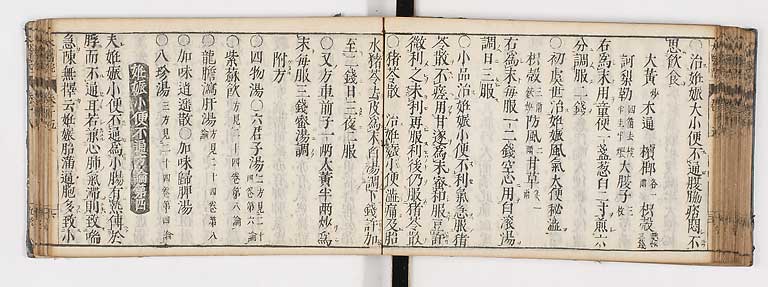 ○治妊娠大小便不通腹脇痞悶不
思飲食
大黃炒 木通 檳榔各一兩 枳殼
訶梨勒 大腹子
右爲末用童便一盞葱白二寸煎六
分調服二錢
○初虞世治妊娠風氣大便秘澁
枳殼三兩 防風二兩 甘草
右爲末每服一二錢空心用白滾湯
調日三服
○小品治妊娠小便不利氣急服猪
苓散不瘥用甘遂爲末蜜和服豆許
微利之未利再服利後仍服猪苓散
○猪苓散 治妊娠小便澁痛及胎
水猪苓去皮爲末白湯調下錢許加
至二錢日三夜二服
○又方車前子一兩大黃半兩炒爲
末每服三錢蜜湯調
附方
○四物湯○六君子湯二方見二十四卷第六論
○紫蘇飲方見二十四卷第八論
龍膽瀉肝湯方見二十四卷第八論
○加味逍遙散○加味歸脾湯
○八珍湯三方見二十四卷第四論
妊娠小便不通方論第四
夫妊娠小便不通爲小腸有熱傳於
脬而不通耳若兼心肺氣滯則致喘
急陳無擇云妊娠胎滿逼胞多致小